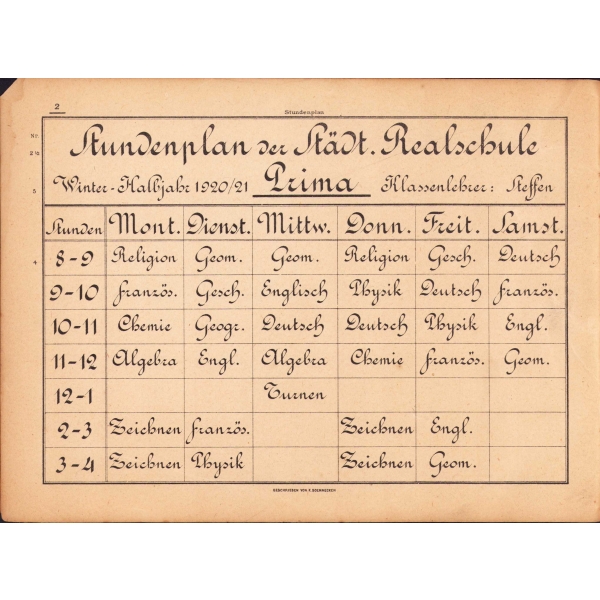 2
Stundenplan
Nr.
2 ½
3
4
Stundenplan der Städt. Realschule
Winter-Halbjahr 1920/21 Prima Klassenlehrer: Steffen
Stunden Mont. Dienst. Mittw. Donn. Freit. Samst.
8-9 Religion Geom. Geom. Religion Gesch. Deutsch
9-10 Französ. Gesch. Englisch Physik Deutsch Französ.
10-11 Chemie Geogr. Deutsch Deutsch Physik Engl.
11-12 Algebra Engl. Algebra Chemie Französ. Geom.
12-1 Turnen
2-3 Zeichnen Französ. Zeichnen Engl.
3-4 Zeichnen Physik Zeichnen Geom.
GESCHRIEBEN VON